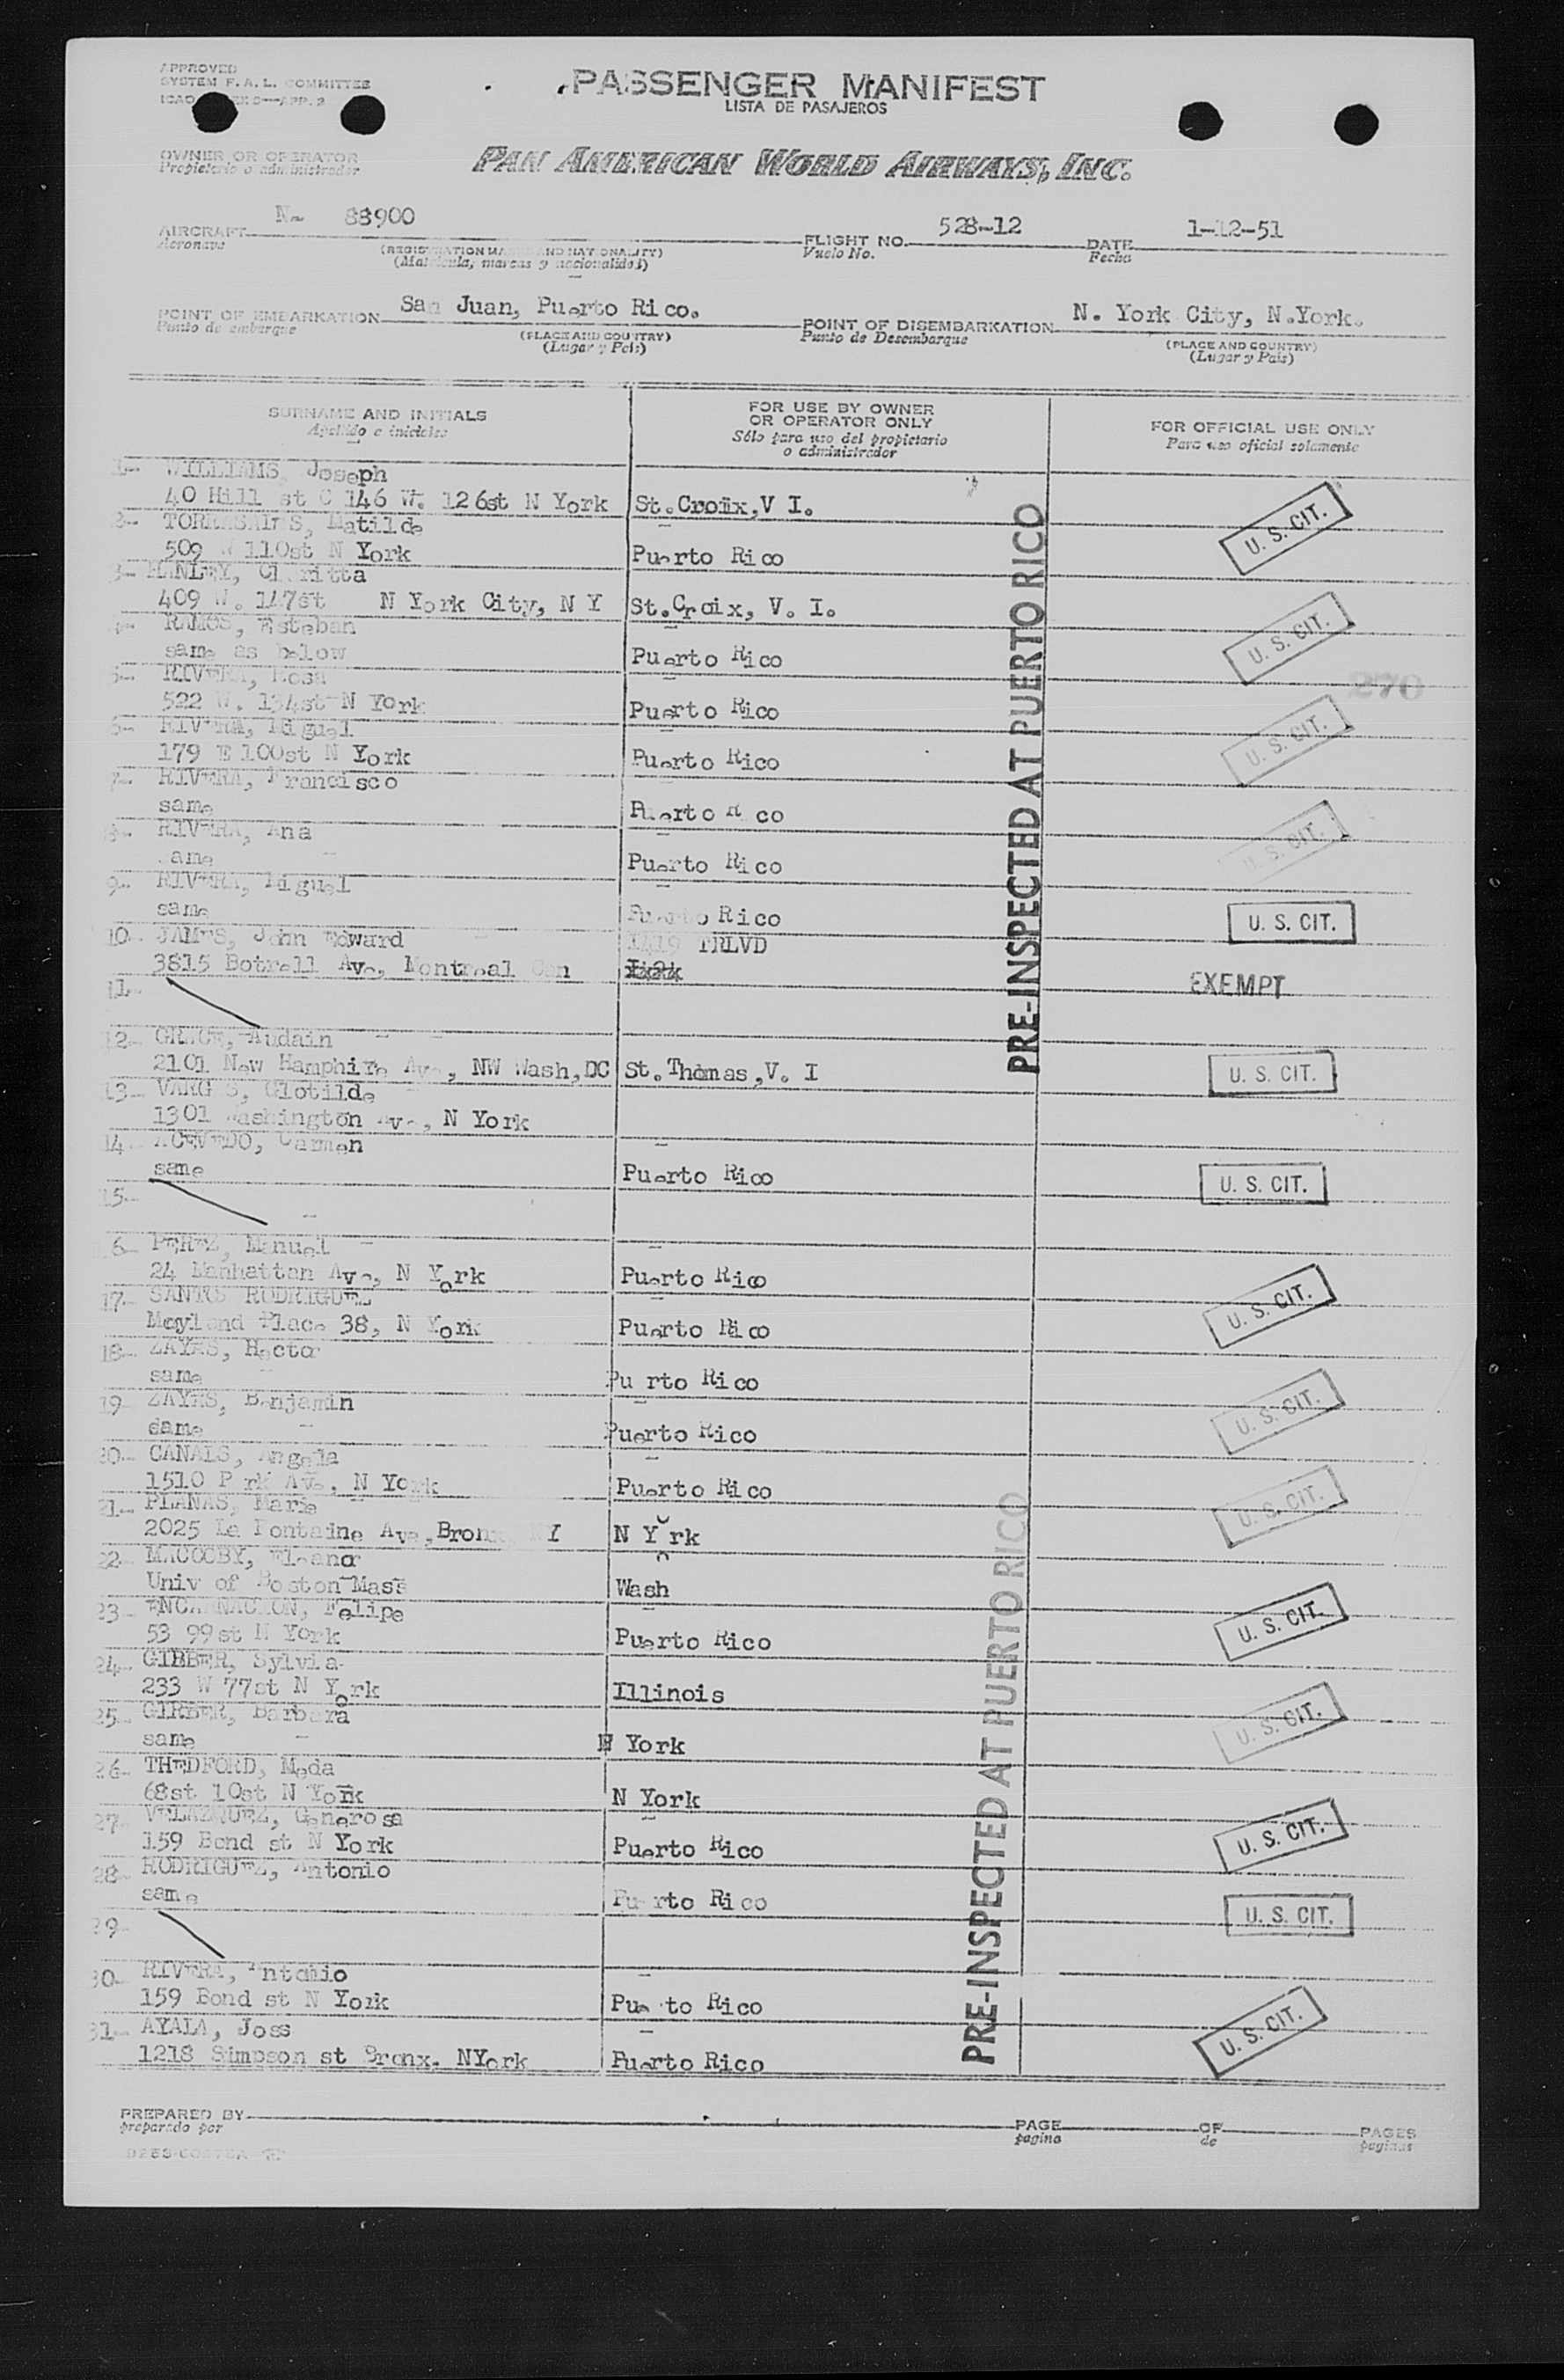 APPROVED
SYSTEM F. A. L. COMMITTEE
ICAO APP. 2
PASSENGER MANIFEST
LISTA DE PASAJEROS
OWNER OR OPERATOR
Propietario o administrador
PAN AMERICAN WORLD AIRWAYS, INC.
AIRCRAFT N- 88900
Aeronave
(REGISTRATION MARKS AND NATIONALITY)
(Matricula, marcas y nacionalidad)
FLIGHT NO. 528-12
Vuelo No.
DATE 1-12-51
Fecha
POINT OF EMBARKATION San Juan, Puerto Rico.
Punto de embarque
(PLACE AND COUNTRY)
(Lugar y Pais)
POINT OF DISEMBARKATION N. York City, N.York.
Punto de Desembarque
(PLACE AND COUNTRY)
(Lugar y Pais)
SURNAME AND INITIALS
Apellido e iniciales
FOR USE BY OWNER
OR OPERATOR ONLY
Sólo para uso del propietario
o administrador
FOR OFFICIAL USE ONLY
Para uso oficial solamente
1- WILLIAMS, Joseph
40 Hill st C 146 W. 126st N York St.Croix,V I. U. S. CIT.
2- Matilde
509 W 110st N York Puerto Rico
3- HENLEY,
409 W. 147st N York City, N Y St.Croix, V. I. U. S. CIT.
4- RAMOS, Esteban
same as below Puerto Rico
5- RIVERA, Rosa 270
522 W. 134st N York Puerto Rico U. S. CIT.
6- RIVERA, Miguel
179 E 100st N York Puerto Rico
7- RIVERA, Francisco
same Puerto Rico U. S. CIT.
8- RIVERA, Ana
same Puerto Rico
9- RIVERA, Miguel
same Puerto Rico U. S. CIT.
10- JAMES, John Edward TRLVD
3815 Botrell Ave, Montreal Can EXEMPT
11-
12- GRACE, Audain
2101 New Hamphire Ave, NW Wash,DC St.Thomas,V. I U. S. CIT.
13- VARGAS, Clotilde
1301 Washington Ave, N York
14- ACEVEDO, Carmen
same Puerto Rico U. S. CIT.
15-
16- PEREZ, Manuel
24 Manhattan Ave, N York Puerto Rico U. S. CIT.
17- SANTOS RODRIGUEZ
Place 38, N York Puerto Rico
18- ZAYAS, Hector
same Puerto Rico U. S. CIT.
19- ZAYAS, Benjamin
same Puerto Rico
20- CANALS, Angela
1510 Park Ave, N York Puerto Rico U. S. CIT.
21- PLANAS, Maria
2025 La Fontaine Ave,Bronx NY N York
22- MACCOBY, Eleanor
Univ of Boston Mass Wash U. S. CIT.
23- ENCARNACION, Felipe
53 99st N York Puerto Rico
24- GIBBER, Sylvia
233 W 77st N York Illinois U. S. CIT.
25- GIRBER, Barbara
same N York
26- THEDFORD, Meda
68st 10st N York N York U. S. CIT.
27- VELAZQUEZ, Generosa
159 Bond st N York Puerto Rico
28- RODRIGUEZ, Antonio
same Puerto Rico U. S. CIT.
29-
30- RIVERA, Antonio
159 Bond st N York Puerto Rico U. S. CIT.
31- AYALA, Joss
1218 Simpson st Bronx. NYork Puerto Rico
PRE-INSPECTED AT PUERTO RICO
PRE-INSPECTED AT PUERTO RICO
PREPARED BY
preparado por
PAGE
pagina
OF
de
PAGES
paginas